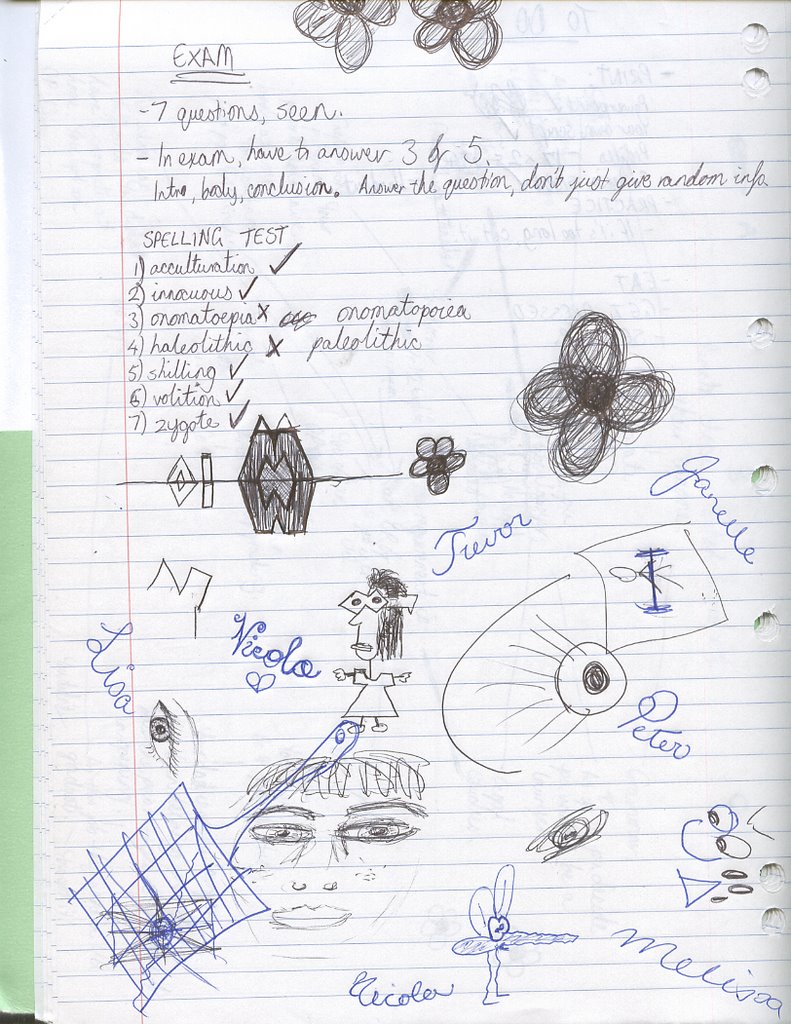 EXAM
- 7 questions, seen.
- In exam, have to answer 3 of 5.
Intro, body, conclusion. Answer the question, don't just give random info.
SPELLING TEST
1) acculturation ✓
2) innocuous ✓
3) onomatoepia X onomatopoiea
4) haleolithic X paleolithic
5) shilling ✓
6) volition ✓
7) zygote ✓
Janelle
Trevor
Lisa
Nicola
Peter
Melissa
Nicola